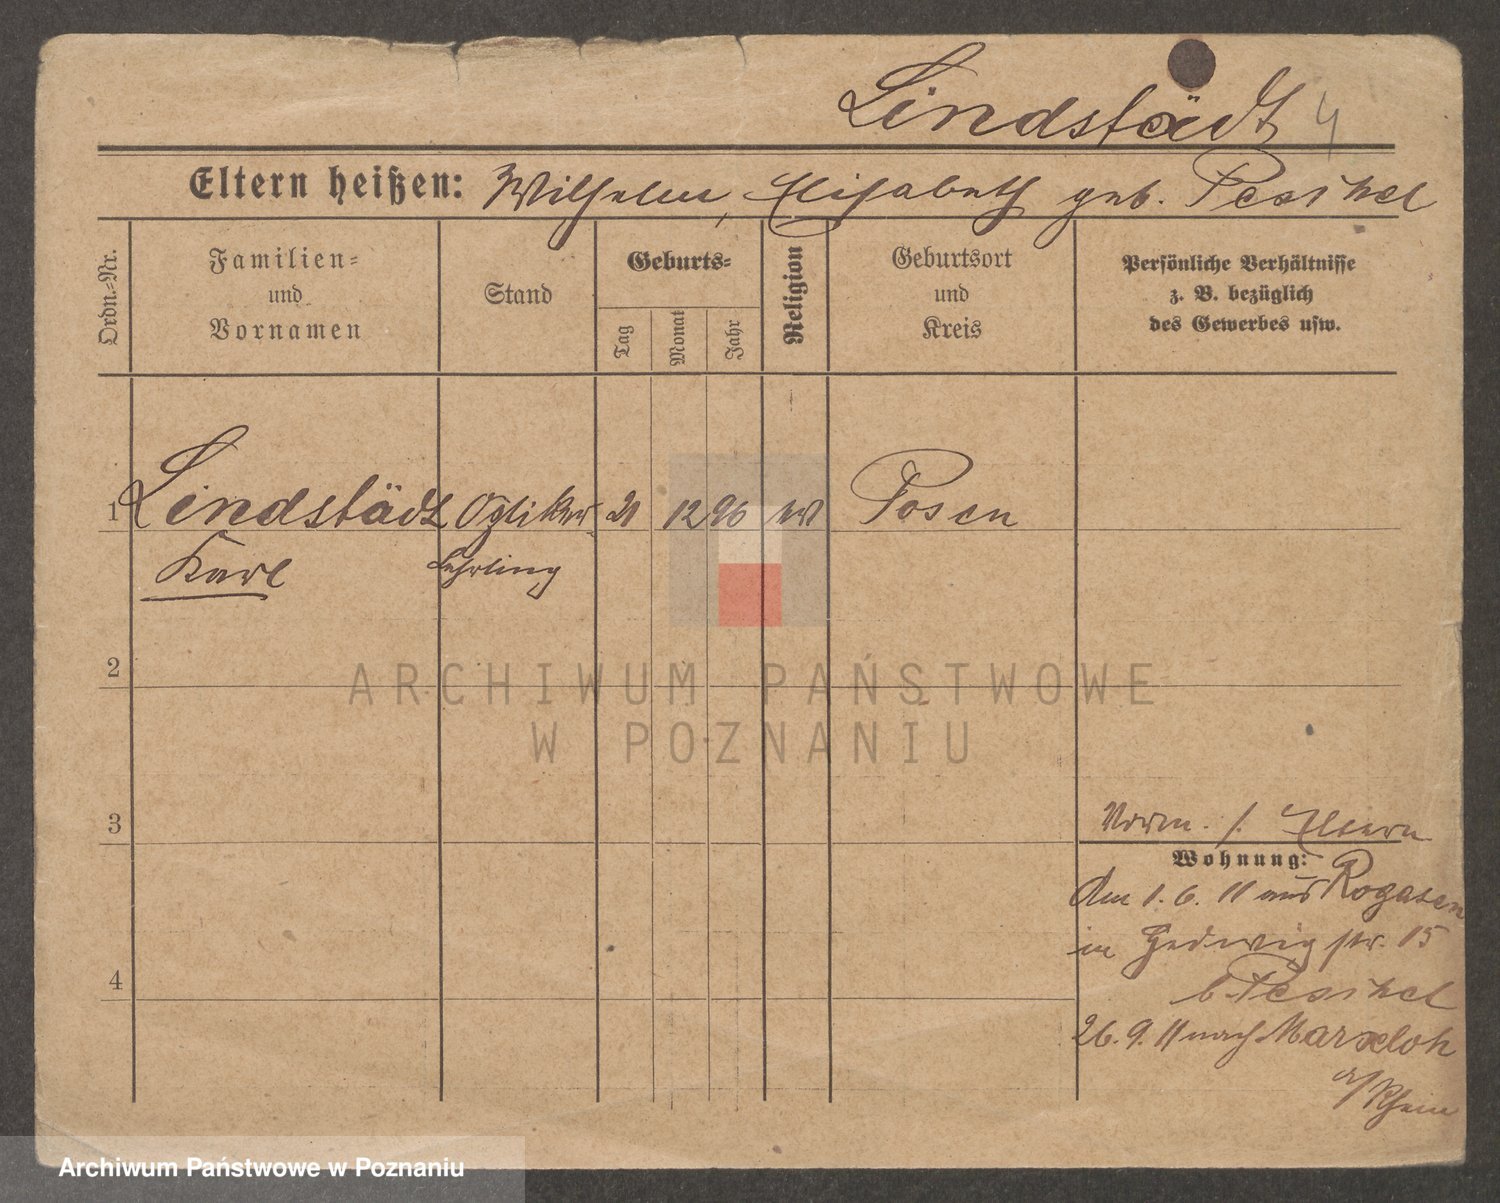 Lindstädt 4
Eltern heißen: Wilhelm, Elisabeth geb. Pesikel
Ordn.-Nr.
Familien-
und
Vornamen
Stand
Geburts-
Tag
Monat
Jahr
Religion
Geburtsort
und
Kreis
Persönliche Verhältnisse
z. B. bezüglich
des Gewerbes usw.
1 Lindstädt Optiker 21 12 96 Posen
Karl Lehrling
2
ARCHIWUM PAŃSTWOWE
W POZNANIU
3
Vorm. s. Eltern
Wohnung:
Am 1. 6. 11 aus Rogasen
in Hedwig str. 15
b. Pesikel
4
26. 9. 11 nach Marxloh
a/Rhein
Archiwum Państwowe w Poznaniu